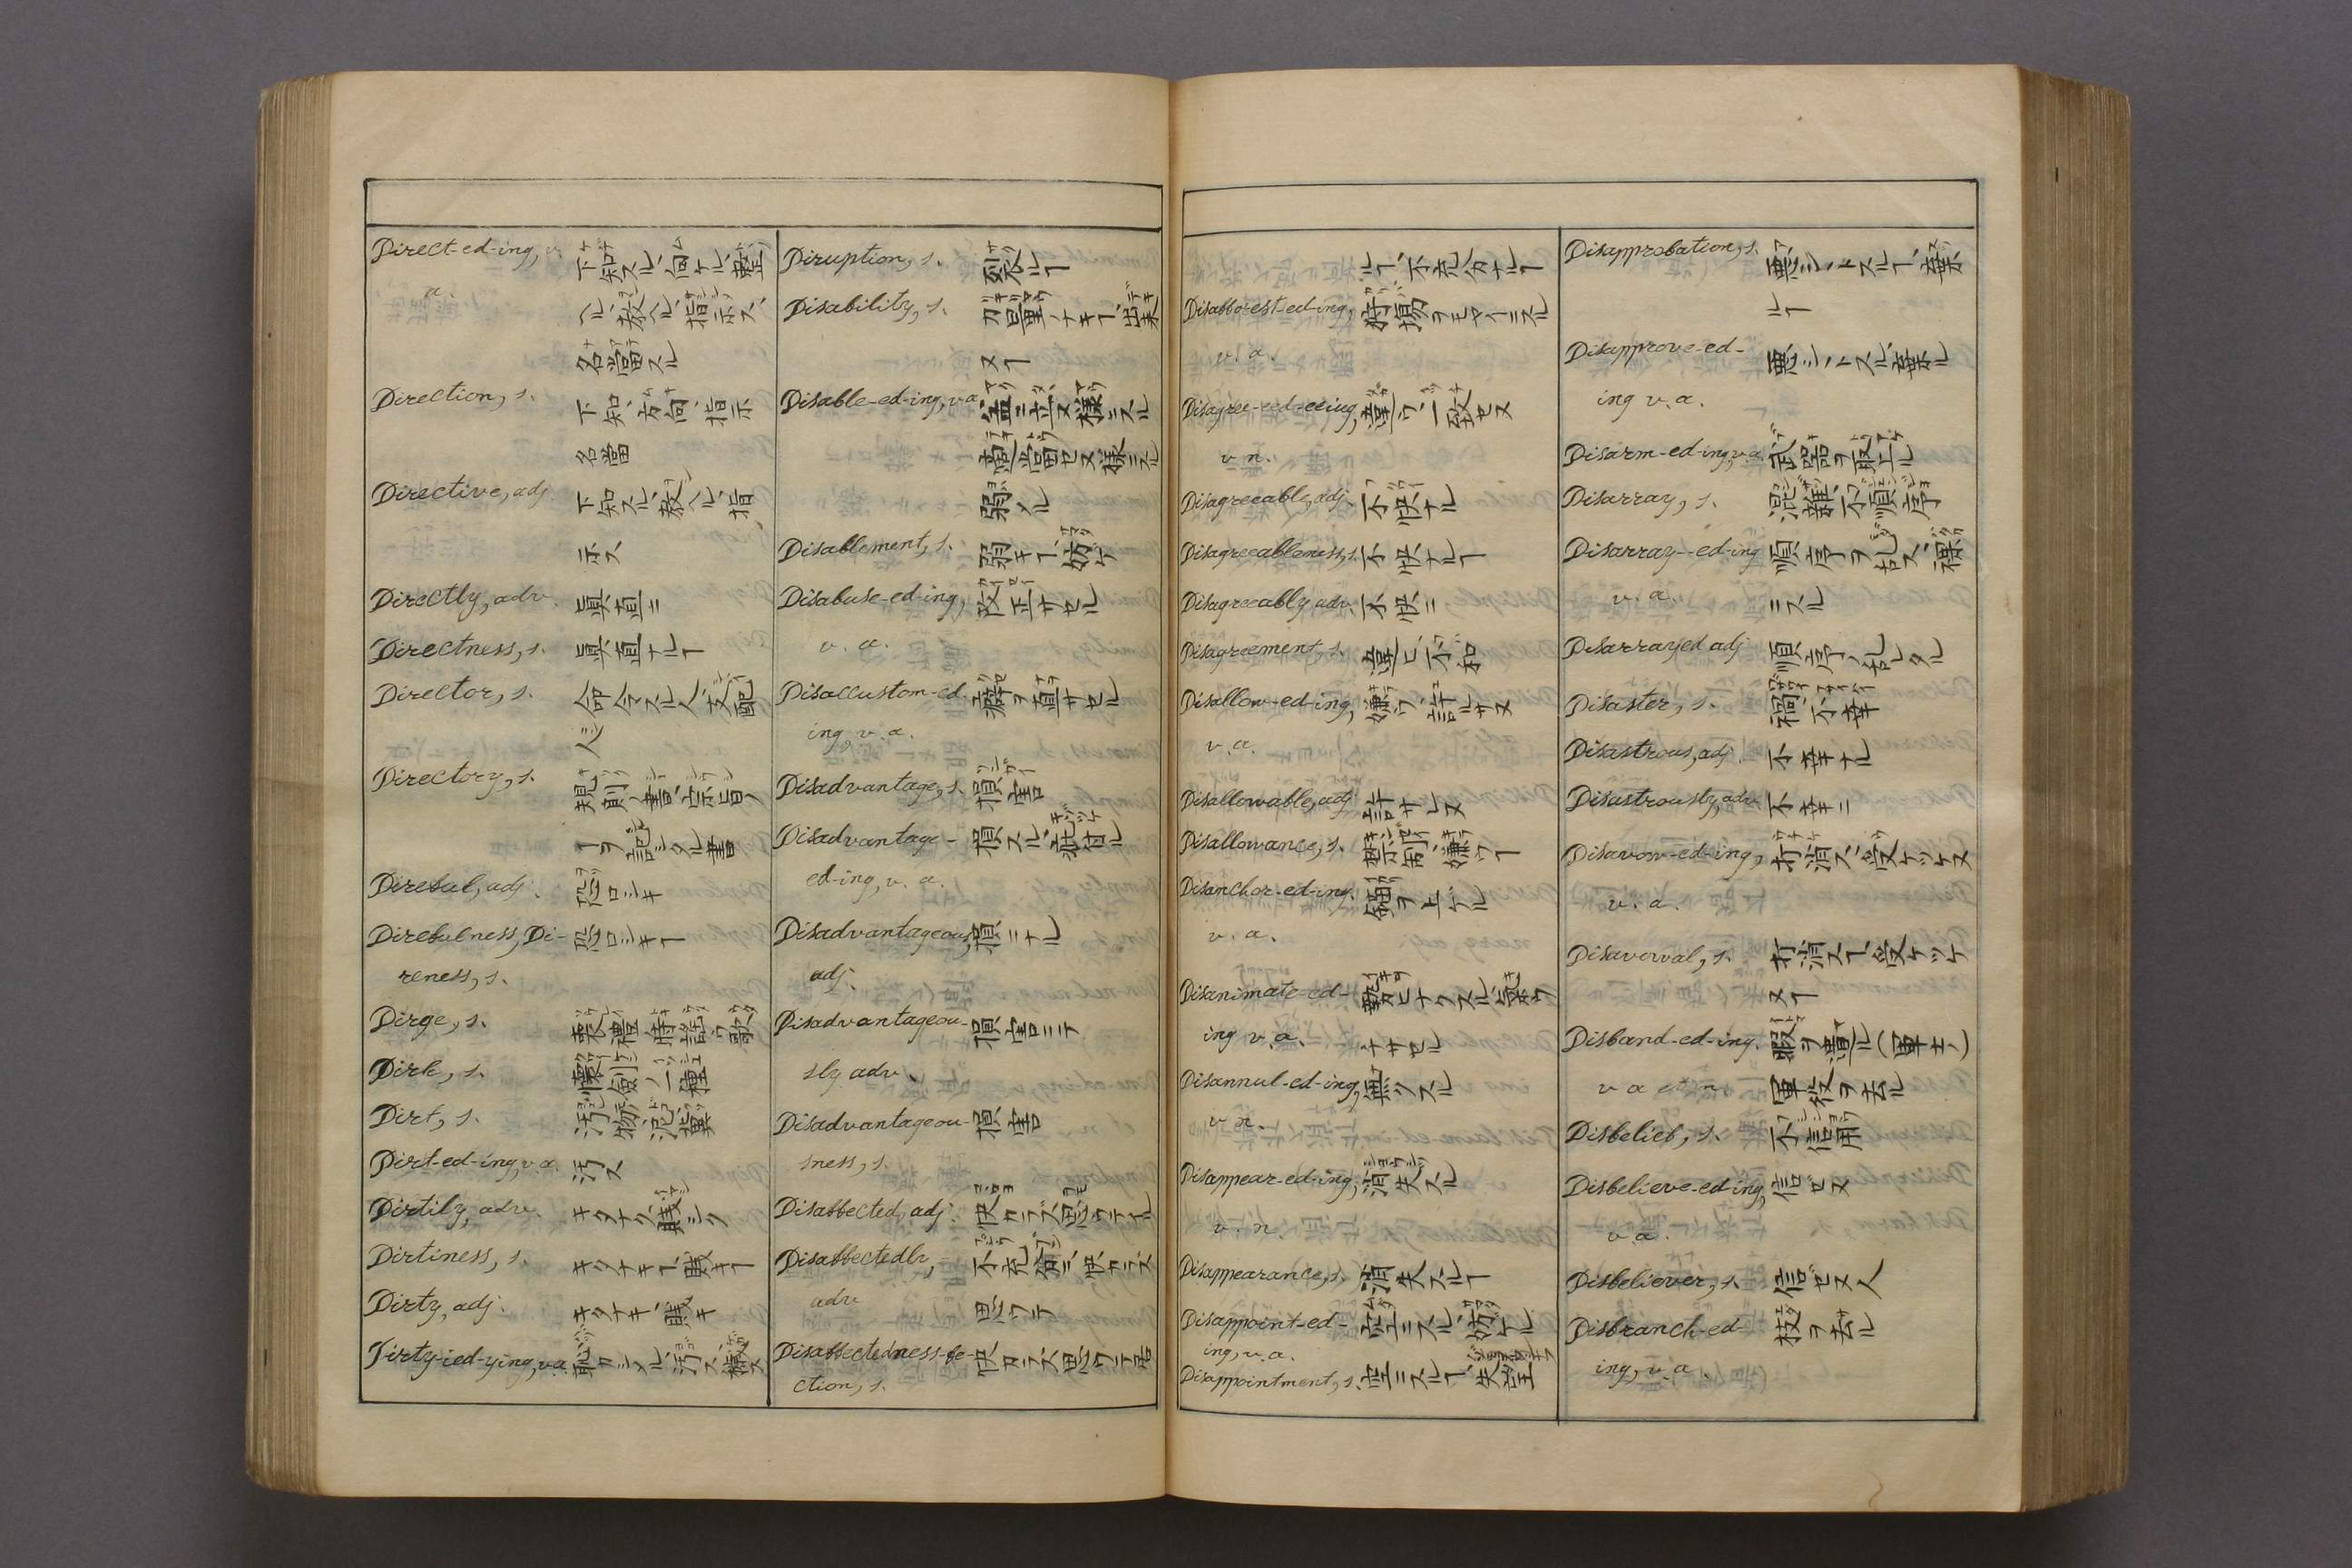 Direct-ed-ing, v. 下知スル、向ケル、整
a. ヘル、教ヘル、指示ス、
名當スル
Direction, s. 下知、方向、指示
名當
Directive, adj. 下知スル、教ヘル、指
示ス
Directly, adv. 眞直ニ
Directness, s. 眞直ナルヿ
Director, s. 命令スル人、支配
人
Directory, s. 規則ノ書、宗旨ノ
ヿヲ記シタル書
Direful, adj. 恐ロシキ
Direfulness, Di- 恐ロシキヿ
reness, s.
Dirge, s. 喪禮ノ時謡フ歌
Dirk, s. 懷劔ノ一種
Dirt, s. 汚物、泥、糞
Dirt-ed-ing, v.a. 汚ス
Dirtily, adv. キタナク、賤シク
Dirtiness, s. キタナキヿ、賤キヿ
Dirty, adj. キタナキ、賤キ
Dirty-ied-ying, v.a. 恥カシメル、汚ス、穢ス
Diruption, s. 裂ルヿ
Disability, s. 力量ノナキヿ、出来
ヌヿ
Disable-ed-ing, v.a. 益ニ立ヌ様ニスル
適當セヌ様ニスル
弱メル
Disablement, s. 弱キヿ、妨ケ
Disabuse-ed-ing, 改正サセル
v. a.
Disaccustom-ed- 癖ヲ直サセル
ing, v. a.
Disadvantage, s. 損害
Disadvantage- 損スル、疵付ル
ed-ing, v. a.
Disadvantageous, 損ニナル
adj.
Disadvantageou- 損害ニテ
sly adv.
Disadvantageou- 損害
sness, s.
Disaffected, adj. 快カラズ思フテイル
Disaffectedly, 不充分ニ、快カラズ
adv 思フテ
Disaffectedness-fe- 快カラズ思フテ居
ction, s.
ルヿ、不充分ナルヿ
Disafforest-ed-ing, 狩塲ヲモヤイニスル
v. a.
Disagree-ed-eeing, 違フ、一致セヌ
v n.
Disagreeable, adj. 不快ナル
Disagreeableness, s. 不快ナルヿ
Disagreeably adv. 不快ニ
Disagreement, s. 違ヒ、不和
Disallow-ed-ing, 嫌フ、許ルサヌ
v. a.
Disallowable, adj. 許サレヌ
Disallowance, s. 禁制、嫌フヿ
Disanchor-ed-ing. 錨ヲ上ゲル
v. a.
Disanimate-ed- 勢ヒナクスル、氣力
ing v. a. ナサセル
Disannul-ed-ing, 無ツスル
v n.
Disappear-ed-ing, 消失スル
v. n.
Disappearance, s. 消失スルヿ
Disappoint-ed- 空ニスル、妨ケル
ing, v. a.
Disappointment, s. 空ニスルヿ、失望
Disapprobation, s. 悪シヽトスルヿ、棄
ルヿ
Disapprove-ed- 悪シヽトスル、棄ル
ing v. a.
Disarm-ed-ing, v.a. 武器ヲ取上ル
Disarray, s. 混雜、不順序
Disarray-ed-ing 順序ヲ乱ス、裸
v. a. ニスル
Disarrayed adj 順序ノ乱レタル
Disaster, s. 禍、不幸
Disastrous, adj. 不幸ナル
Disastrously, adv. 不幸ニ
Disavow-ed-ing, 打消ス、受ケツケヌ
v. a.
Disavowal, s. 打消スヿ、受ケツケ
ヌヿ
Disband-ed-ing. 暇ヲ遣ル(軍士ノ)
v a et n. 軍役ヲ去ル
Disbelief, s. 不信用
Disbelieve-ed-ing, 信ゼヌ
v a.
Disbeliever, s. 信ゼヌ人
Disbranch-ed- 枝ヲ去ル
ing, v. a.